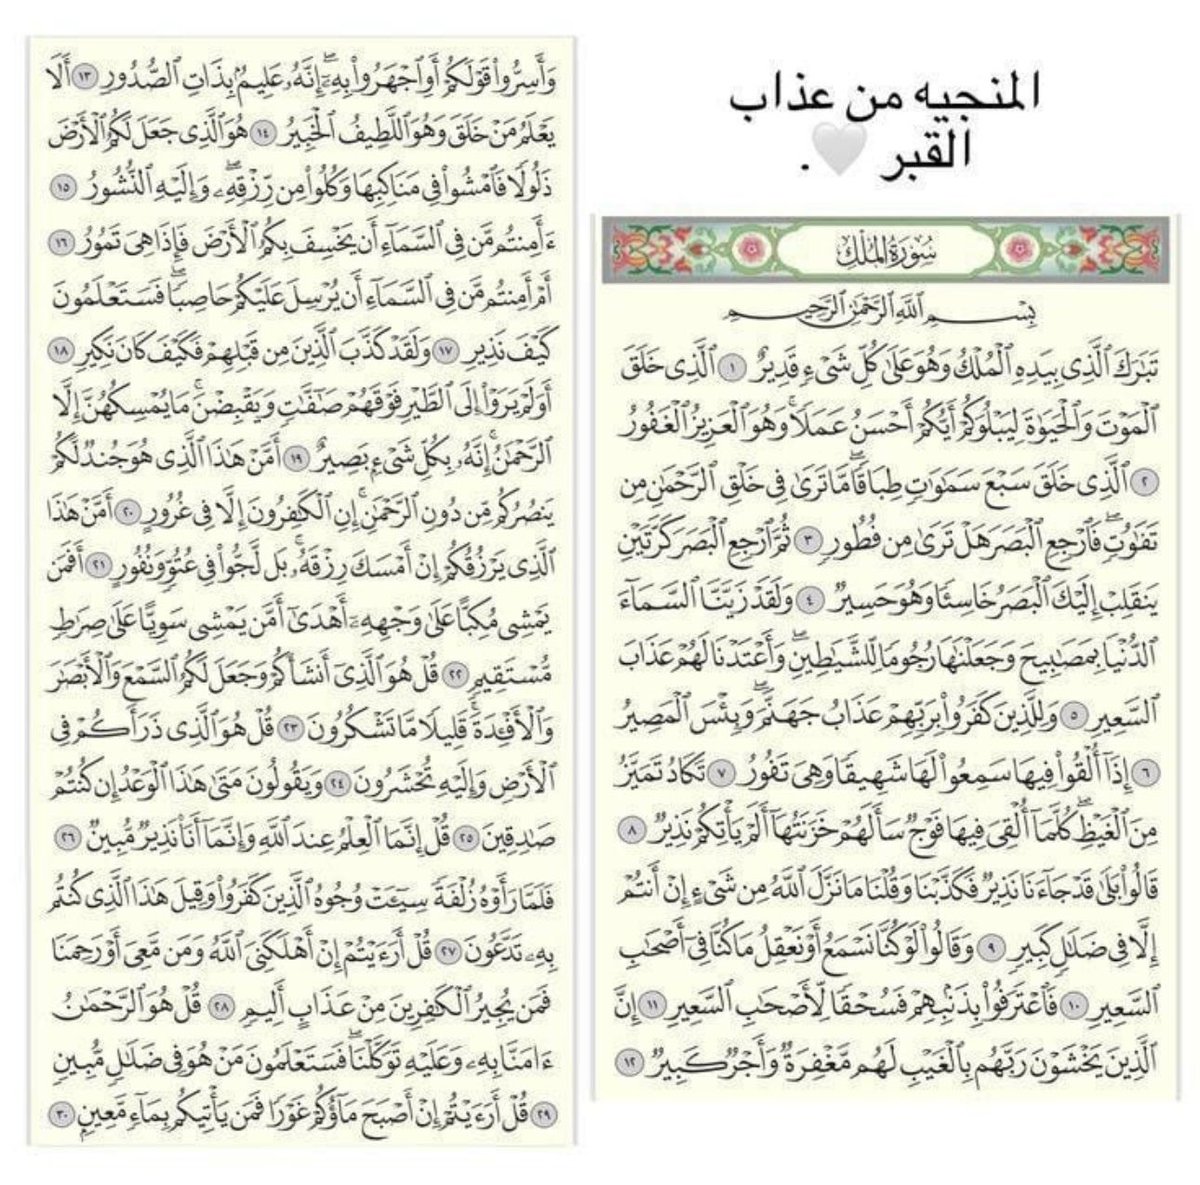 المنجيه من عذاب
القبر 🤍.
سُورَةُ المُلْكِ
بِسْمِ ٱللَّهِ ٱلرَّحْمَٰنِ ٱلرَّحِيمِ
تَبَٰرَكَ ٱلَّذِى بِيَدِهِ ٱلْمُلْكُ وَهُوَ عَلَىٰ كُلِّ شَىْءٍ قَدِيرٌ ١ ٱلَّذِى خَلَقَ
ٱلْمَوْتَ وَٱلْحَيَوٰةَ لِيَبْلُوَكُمْ أَيُّكُمْ أَحْسَنُ عَمَلًا ۚ وَهُوَ ٱلْعَزِيزُ ٱلْغَفُورُ
٢ ٱلَّذِى خَلَقَ سَبْعَ سَمَٰوَٰتٍ طِبَاقًا ۖ مَّا تَرَىٰ فِى خَلْقِ ٱلرَّحْمَٰنِ مِن
تَفَٰوُتٍ ۖ فَٱرْجِعِ ٱلْبَصَرَ هَلْ تَرَىٰ مِن فُطُورٍ ٣ ثُمَّ ٱرْجِعِ ٱلْبَصَرَ كَرَّتَيْنِ
يَنقَلِبْ إِلَيْكَ ٱلْبَصَرُ خَاسِئًا وَهُوَ حَسِيرٌ ٤ وَلَقَدْ زَيَّنَّا ٱلسَّمَآءَ
ٱلدُّنْيَا بِمَصَٰبِيحَ وَجَعَلْنَٰهَا رُجُومًا لِّلشَّيَٰطِينِ ۖ وَأَعْتَدْنَا لَهُمْ عَذَابَ
ٱلسَّعِيرِ ٥ وَلِلَّذِينَ كَفَرُوا۟ بِرَبِّهِمْ عَذَابُ جَهَنَّمَ ۖ وَبِئْسَ ٱلْمَصِيرُ
٦ إِذَآ أُلْقُوا۟ فِيهَا سَمِعُوا۟ لَهَا شَهِيقًا وَهِىَ تَفُورُ ٧ تَكَادُ تَمَيَّزُ
مِنَ ٱلْغَيْظِ ۖ كُلَّمَآ أُلْقِىَ فِيهَا فَوْجٌ سَأَلَهُمْ خَزَنَتُهَآ أَلَمْ يَأْتِكُمْ نَذِيرٌ ٨
قَالُوا۟ بَلَىٰ قَدْ جَآءَنَا نَذِيرٌ فَكَذَّبْنَا وَقُلْنَا مَا نَزَّلَ ٱللَّهُ مِن شَىْءٍ إِنْ أَنتُمْ
إِلَّا فِى ضَلَٰلٍ كَبِيرٍ ٩ وَقَالُوا۟ لَوْ كُنَّا نَسْمَعُ أَوْ نَعْقِلُ مَا كُنَّا فِىٓ أَصْحَٰبِ
ٱلسَّعِيرِ ١٠ فَٱعْتَرَفُوا۟ بِذَنۢبِهِمْ فَسُحْقًا لِّأَصْحَٰبِ ٱلسَّعِيرِ ١١ إِنَّ
ٱلَّذِينَ يَخْشَوْنَ رَبَّهُم بِٱلْغَيْبِ لَهُم مَّغْفِرَةٌ وَأَجْرٌ كَبِيرٌ ١٢
وَأَسِرُّوا۟ قَوْلَكُمْ أَوِ ٱجْهَرُوا۟ بِهِۦٓ ۖ إِنَّهُۥ عَلِيمٌۢ بِذَاتِ ٱلصُّدُورِ ١٣ أَلَا
يَعْلَمُ مَنْ خَلَقَ وَهُوَ ٱللَّطِيفُ ٱلْخَبِيرُ ١٤ هُوَ ٱلَّذِى جَعَلَ لَكُمُ ٱلْأَرْضَ
ذَلُولًا فَٱمْشُوا۟ فِى مَنَاكِبِهَا وَكُلُوا۟ مِن رِّزْقِهِۦ ۖ وَإِلَيْهِ ٱلنُّشُورُ ١٥
ءَأَمِنتُم مَّن فِى ٱلسَّمَآءِ أَن يَخْسِفَ بِكُمُ ٱلْأَرْضَ فَإِذَا هِىَ تَمُورُ ١٦
أَمْ أَمِنتُم مَّن فِى ٱلسَّمَآءِ أَن يُرْسِلَ عَلَيْكُمْ حَاصِبًا ۖ فَسَتَعْلَمُونَ
كَيْفَ نَذِيرِ ١٧ وَلَقَدْ كَذَّبَ ٱلَّذِينَ مِن قَبْلِهِمْ فَكَيْفَ كَانَ نَكِيرِ ١٨
أَوَلَمْ يَرَوْا۟ إِلَى ٱلطَّيْرِ فَوْقَهُمْ صَٰٓفَّٰتٍ وَيَقْبِضْنَ ۚ مَا يُمْسِكُهُنَّ إِلَّا
ٱلرَّحْمَٰنُ ۚ إِنَّهُۥ بِكُلِّ شَىْءٍۭ بَصِيرٌ ١٩ أَمَّنْ هَٰذَا ٱلَّذِى هُوَ جُندٌ لَّكُمْ
يَنصُرُكُم مِّن دُونِ ٱلرَّحْمَٰنِ ۚ إِنِ ٱلْكَٰفِرُونَ إِلَّا فِى غُرُورٍ ٢٠ أَمَّنْ هَٰذَا
ٱلَّذِى يَرْزُقُكُمْ إِنْ أَمْسَكَ رِزْقَهُۥ ۚ بَل لَّجُّوا۟ فِى عُتُوٍّ وَنُفُورٍ ٢١ أَفَمَن
يَمْشِى مُكِبًّا عَلَىٰ وَجْهِهِۦٓ أَهْدَىٰٓ أَمَّن يَمْشِى سَوِيًّا عَلَىٰ صِرَٰطٍ
مُّسْتَقِيمٍ ٢٢ قُلْ هُوَ ٱلَّذِىٓ أَنشَأَكُمْ وَجَعَلَ لَكُمُ ٱلسَّمْعَ وَٱلْأَبْصَٰرَ
وَٱلْأَفْـِٔدَةَ ۖ قَلِيلًا مَّا تَشْكُرُونَ ٢٣ قُلْ هُوَ ٱلَّذِى ذَرَأَكُمْ فِى
ٱلْأَرْضِ وَإِلَيْهِ تُحْشَرُونَ ٢٤ وَيَقُولُونَ مَتَىٰ هَٰذَا ٱلْوَعْدُ إِن كُنتُمْ
صَٰدِقِينَ ٢٥ قُلْ إِنَّمَا ٱلْعِلْمُ عِندَ ٱللَّهِ وَإِنَّمَآ أَنَا۠ نَذِيرٌ مُّبِينٌ ٢٦
فَلَمَّا رَأَوْهُ زُلْفَةً سِيٓـَٔتْ وُجُوهُ ٱلَّذِينَ كَفَرُوا۟ وَقِيلَ هَٰذَا ٱلَّذِى كُنتُم
بِهِۦ تَدَّعُونَ ٢٧ قُلْ أَرَءَيْتُمْ إِنْ أَهْلَكَنِىَ ٱللَّهُ وَمَن مَّعِىَ أَوْ رَحِمَنَا
فَمَن يُجِيرُ ٱلْكَٰفِرِينَ مِنْ عَذَابٍ أَلِيمٍ ٢٨ قُلْ هُوَ ٱلرَّحْمَٰنُ
ءَامَنَّا بِهِۦ وَعَلَيْهِ تَوَكَّلْنَا ۖ فَسَتَعْلَمُونَ مَنْ هُوَ فِى ضَلَٰلٍ مُّبِينٍ
٢٩ قُلْ أَرَءَيْتُمْ إِنْ أَصْبَحَ مَآؤُكُمْ غَوْرًا فَمَن يَأْتِيكُم بِمَآءٍ مَّعِينٍۭ ٣٠